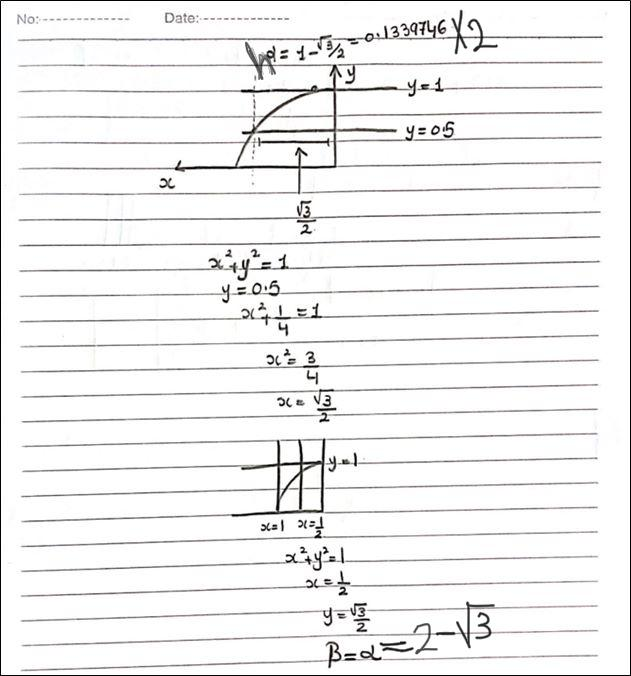 No:-------------- Date:--------------
α = 1 - √3/2 = 0.1339746 X2
y
y = 1
y = 0.5
x
√3/2
x² + y² = 1
y = 0.5
x² + 1/4 = 1
x² = 3/4
x = √3/2
y = 1
x=1 x=1/2
x² + y² = 1
x = 1/2
y = √3/2
β = α = 2 - √3